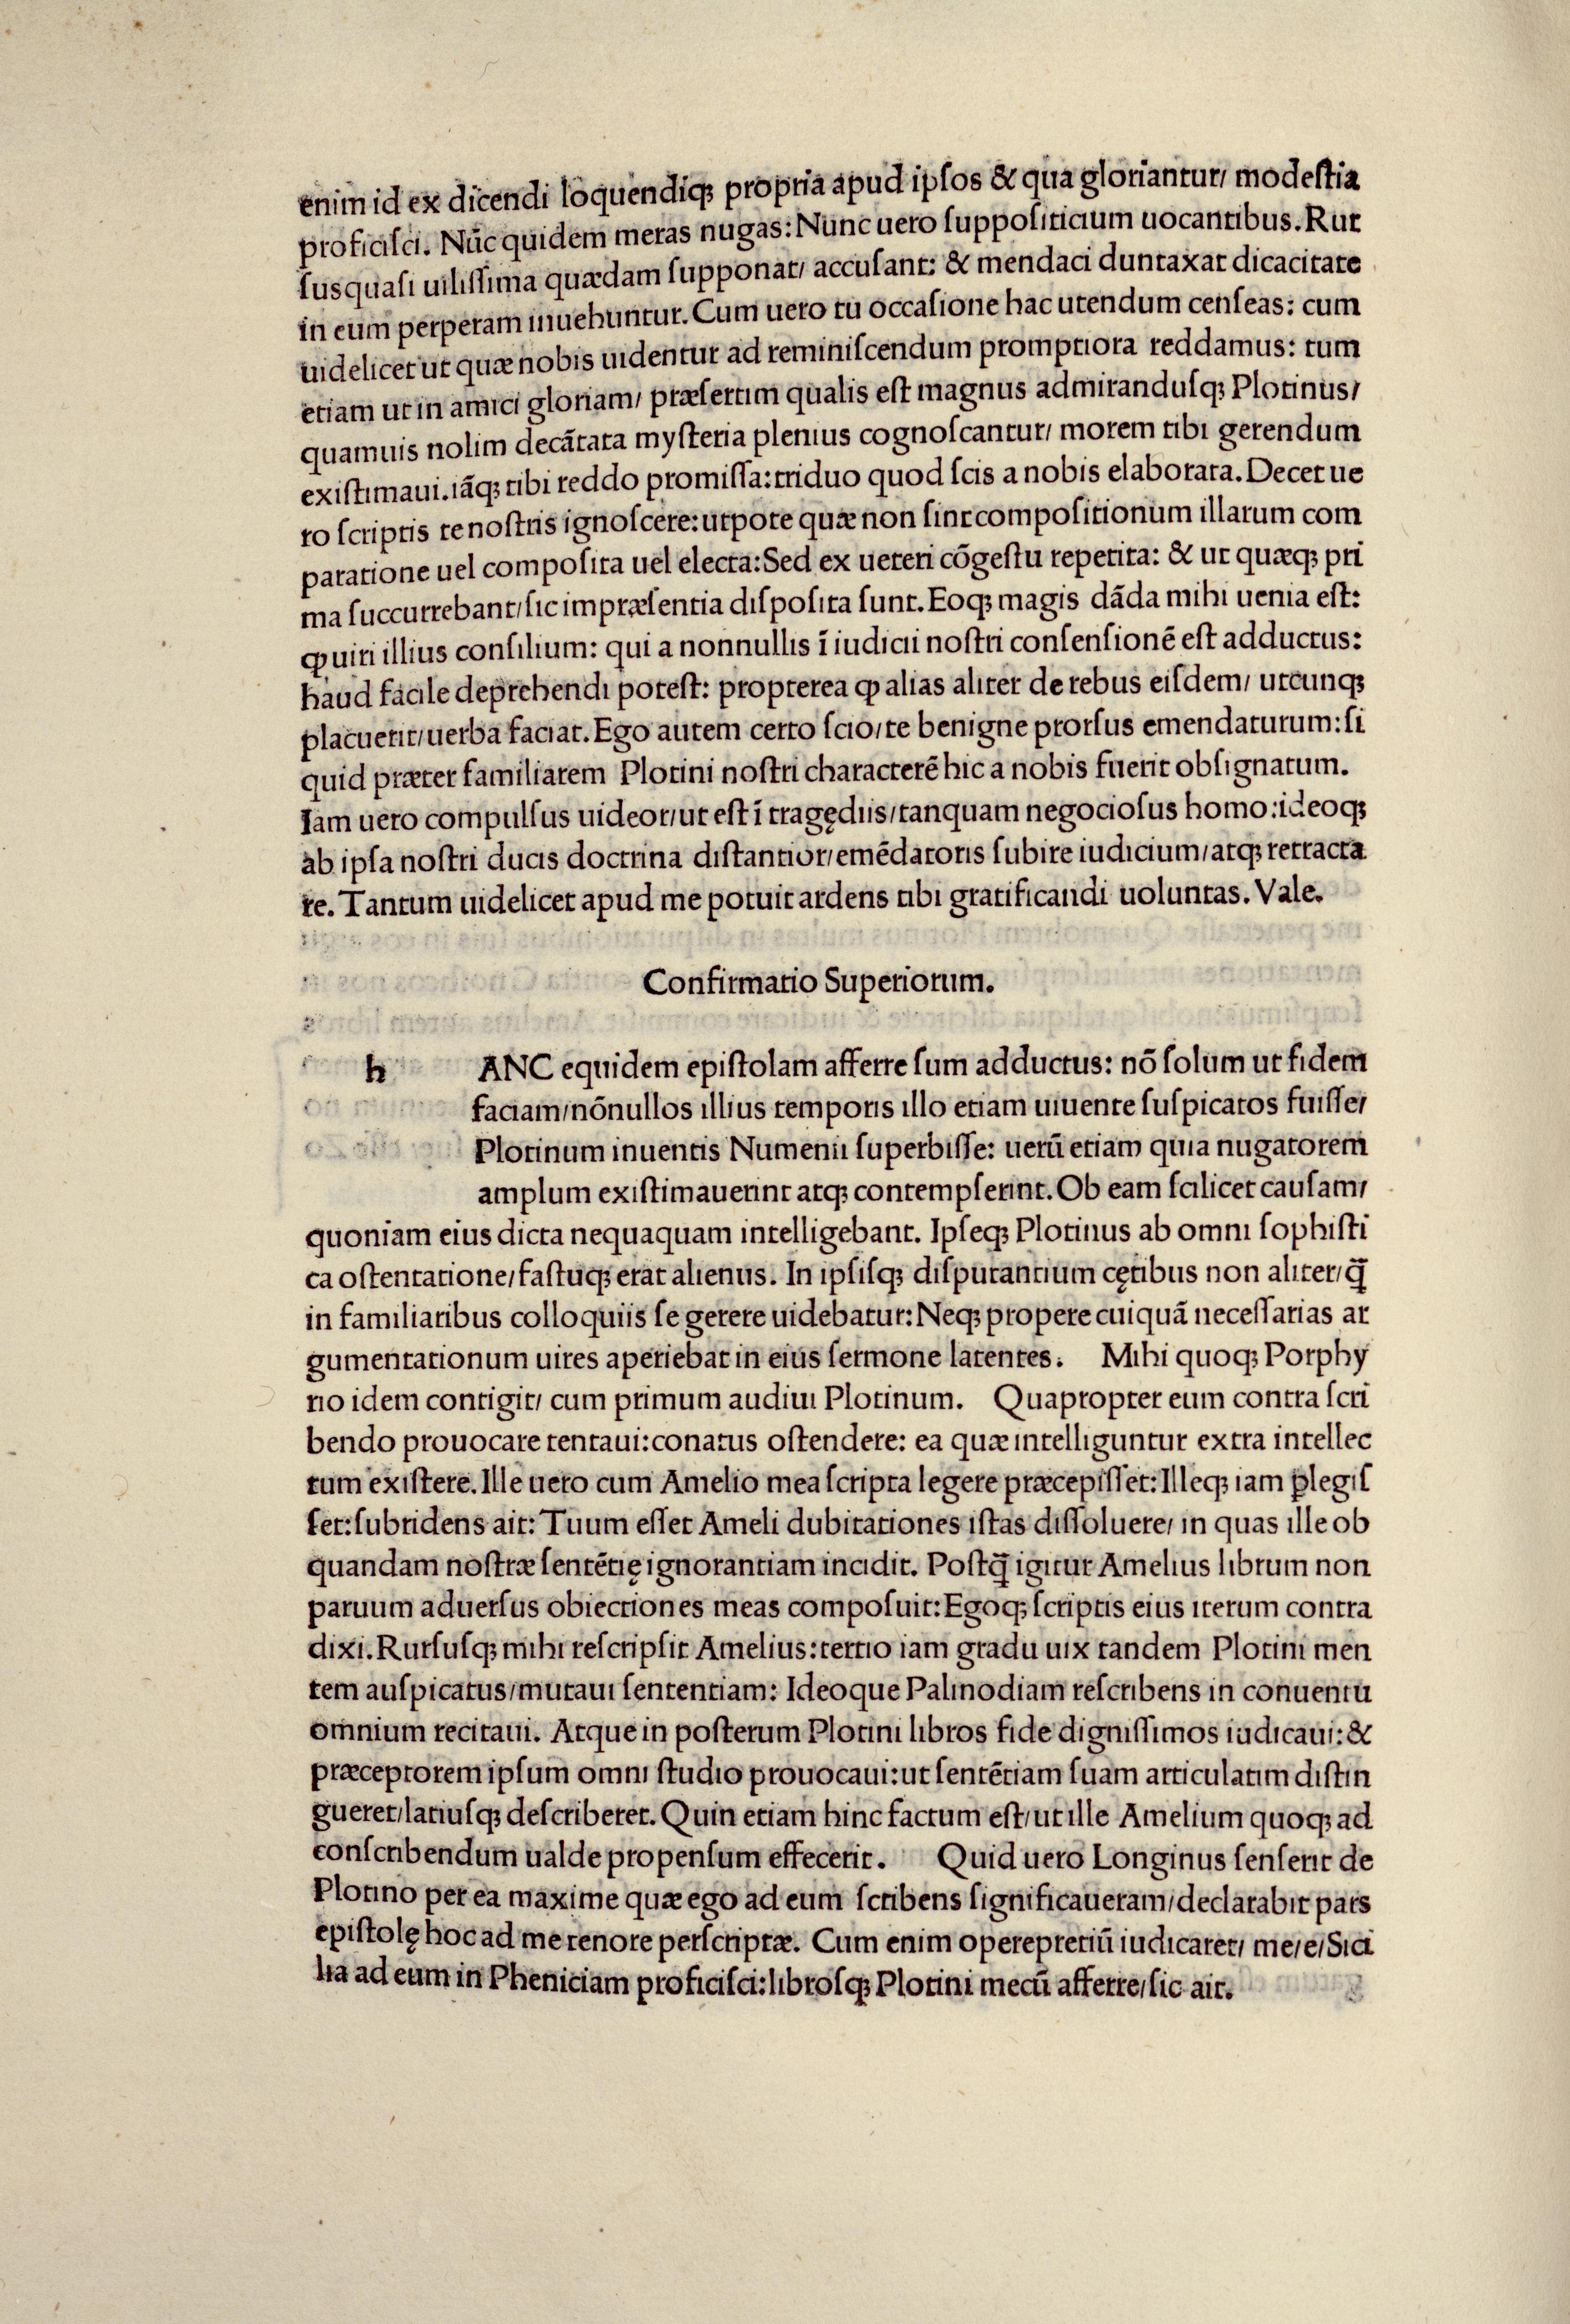 enim id ex dicendi loquendiqꝫ propria apud ipſos & qua gloriantur/ modeſtia
proficiſci. Nūc quidem meras nugas: Nunc uero ſuppoſiticium uocantibus. Rur
ſus quaſi uiliſſima quædam ſupponat/ accuſant: & mendaci duntaxat dicacitate
in eum perperam inuehuntur. Cum uero tu occaſione hac utendum cenſeas: cum
uidelicet ut quæ nobis uidentur ad reminiſcendum promptiora reddamus: tum
etiam ut in amici gloriam/ præſertim qualis eſt magnus admiranduſqꝫ Plotinus/
quamuis nolim decātata myſteria plenius cognoſcantur/ morem tibi gerendum
exiſtimaui. iāqꝫ tibi reddo promiſſa: triduo quod ſcis a nobis elaborata. Decet ue
ro ſcriptis te noſtris ignoſcere: utpote quæ non ſint compoſitionum illarum com
paratione uel compoſita uel electa: Sed ex ueteri cōgeſtu repetita: & ut quæqꝫ pri
ma ſuccurrebant/ ſic impræſentia diſpoſita ſunt. Eoqꝫ magis dāda mihi uenia eſt:
ꝙ uiri illius conſilium: qui a nonnullis ī iudicii noſtri conſenſionē eſt adductus:
haud facile deprehendi poteſt: propterea ꝙ alias aliter de rebus eiſdem/ utcunqꝫ
placuerit/ uerba faciat. Ego autem certo ſcio/ te benigne prorſus emendaturum: ſi
quid præter familiarem Plotini noſtri characterē hic a nobis fuerit obſignatum.
Iam uero compulſus uideor/ ut eſt ī tragędiis/ tanquam negocioſus homo: ideoqꝫ
ab ipſa noſtri ducis doctrina diſtantior/ emēdatoris ſubire iudicium/ atqꝫ retracta
re. Tantum uidelicet apud me potuit ardens tibi gratificandi uoluntas. Vale.
Confirmatio Superiorum.
h ANC equidem epiſtolam afferre ſum adductus: nō ſolum ut fidem
faciam/ nōnullos illius temporis illo etiam uiuente ſuſpicatos fuiſſe/
Plotinum inuentis Numenii ſuperbiſſe: uerū etiam quia nugatorem
amplum exiſtimauerint atqꝫ contempſerint. Ob eam ſcilicet cauſam/
quoniam eius dicta nequaquam intelligebant. Ipſeqꝫ Plotinus ab omni ſophiſti
ca oſtentatione/ faſtuqꝫ erat alienus. In ipſiſqꝫ diſputantium cętibus non aliter/ ꝗ̄
in familiaribus colloquiis ſe gerere uidebatur: Neqꝫ propere cuiquā neceſſarias ar
gumentationum uires aperiebat in eius ſermone latentes. Mihi quoqꝫ Porphy
rio idem contigit/ cum primum audiui Plotinum. Quapropter eum contra ſcri
bendo prouocare tentaui: conatus oſtendere: ea quæ intelliguntur extra intellec
tum exiſtere. Ille uero cum Amelio mea ſcripta legere præcepiſſet: Illeqꝫ iam ꝑlegiſ
ſet: ſubridens ait: Tuum eſſet Ameli dubitationes iſtas diſſoluere/ in quas ille ob
quandam noſtræ ſentētię ignorantiam incidit. Poſtꝗ̄ igitur Amelius librum non
paruum aduerſus obiectiones meas compoſuit: Egoqꝫ ſcriptis eius iterum contra
dixi. Rurſuſqꝫ mihi reſcripſit Amelius: tertio iam gradu uix tandem Plotini men
tem auſpicatus/ mutaui ſententiam: Ideoque Palinodiam reſcribens in conuentu
omnium recitaui. Atque in poſterum Plotini libros fide digniſſimos iudicaui: &
præceptorem ipſum omni ſtudio prouocaui: ut ſentētiam ſuam articulatim diſtin
gueret/ latiuſqꝫ deſcriberet. Quin etiam hinc factum eſt/ ut ille Amelium quoqꝫ ad
conſcribendum ualde propenſum effecerit. Quid uero Longinus ſenſerit de
Plotino per ea maxime quæ ego ad eum ſcribens ſignificaueram/ declarabit pars
epiſtolę hoc ad me tenore perſcriptæ. Cum enim operepretiū iudicaret/ me/ e/ Sici
lia ad eum in Pheniciam proficiſci: libroſqꝫ Plotini mecū afferre/ ſic ait.